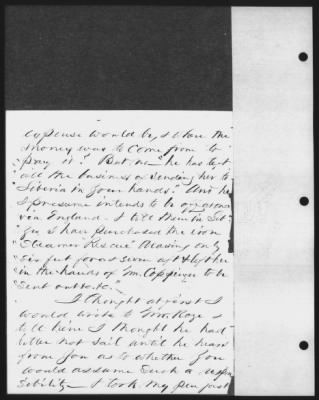 expense would be, & where the
money was to come from to
"pay it". But no "he has left
"all the business of sending her to
"Liberia in your hands." And he
I presume intends to be off
via England - I tell them in
you I have purchased the iron
"Steamer Rescue" drawing only
six feet for
in the hands of Mr. Coppinger to be
"sent out to
I thought at first I
would write to &
tell him I thought he had
better not sail until he hears
from you as to whether you
would assume such a
- I took my pen just